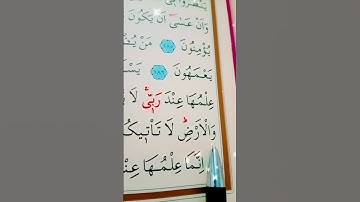 وَاَنْ عَسٰٓى اَنْ يَكُونَ
يُؤْمِنُونَ ﴿١٨٥﴾ مَنْ
يَعْمَهُونَ ﴿١٨٦﴾
عِلْمُهَا عِنْدَ رَبّ۪يۚ لَا
وَالْاَرْضِۜ لَا تَأْت۪يكُ
اِنَّمَا عِلْمُهَا عِنْ